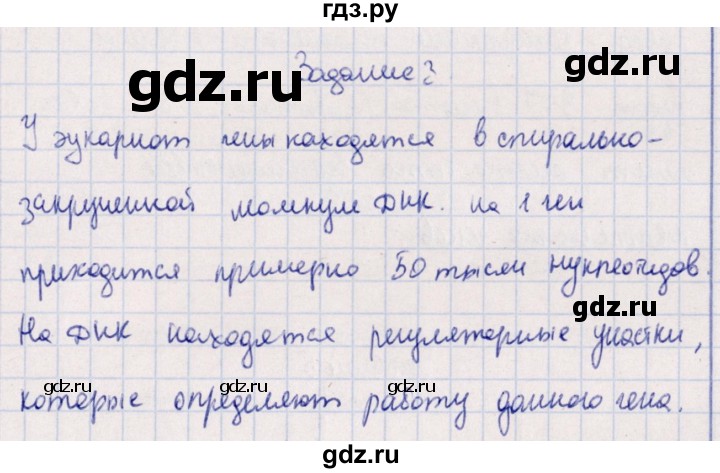 гдз.ру
gdz.ru
gdz.ru
Задание 3.
У эукариот гены находятся в спирально-
закрученной молекуле ДНК. на 1 ген
приходится примерно 50 тысяч нуклеотидов.
gdz.ru
На ДНК находятся регуляторные участки,
gdz.ru
gdz.ru
gdz.ru
которые определяют работу данного гена.
gdz.ru